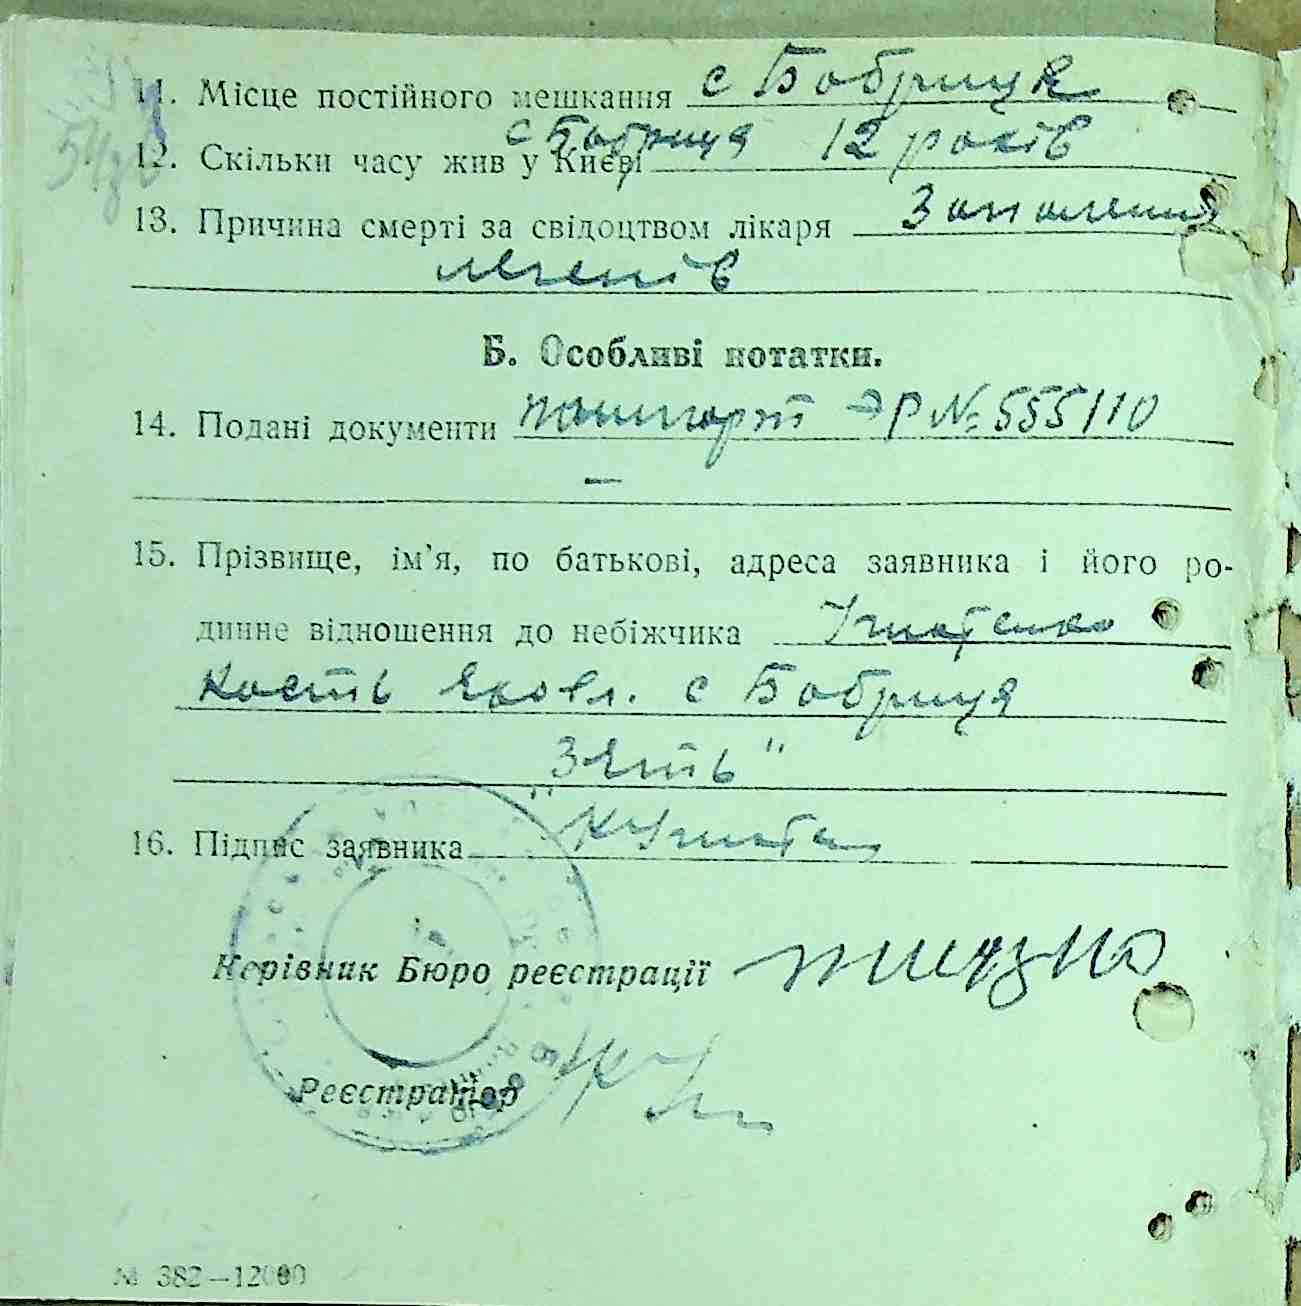 11. Місце постійного мешкання с Бобриця
12. Скільки часу жив у Києві с Бобриця 12 років
13. Причина смерті за свідоцтвом лікаря Запалення
легенів
Б. Особливі нотатки.
14. Подані документи пашпорт ЭР № 555110
—
15. Прізвище, ім'я, по батькові, адреса заявника і його ро-
динне відношення до небіжчика Ігнатенко
Кость Яковл. с Бобриця
"Зять"
16. Підпис заявника
Керівник Бюро реєстрації
Реєстратор
№ 382—12000